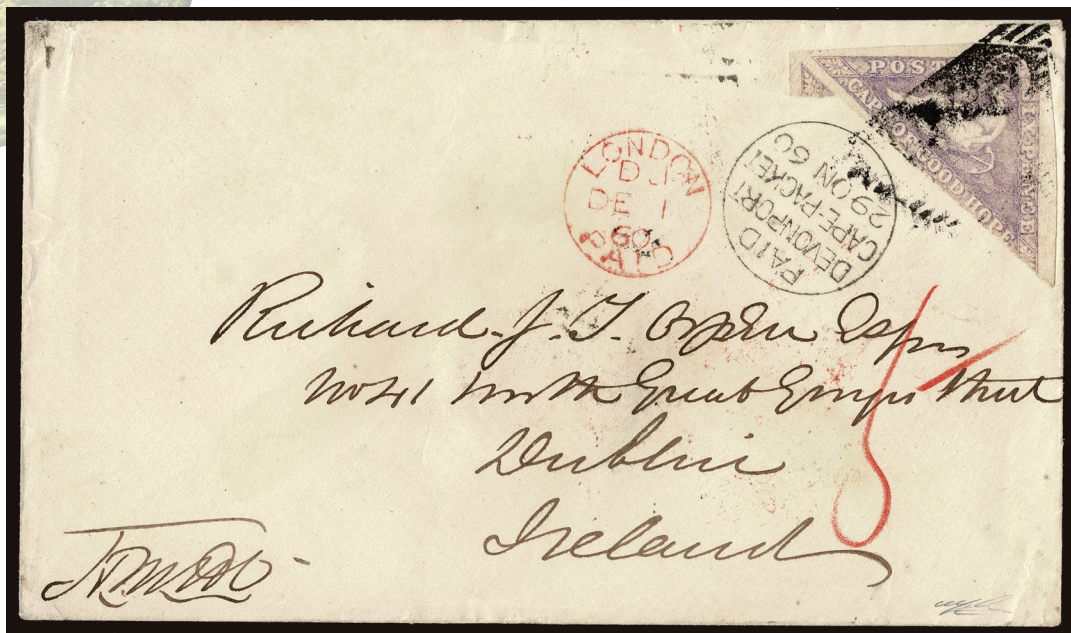 POSTAGE
CAPE OF GOOD HOPE
SIX PENCE
LONDON
DJ
DE 1
60
PAID
PAID
DEVONPORT
CAPE-PACKET
29 ON 60
Richard. J. T. Orpen Esqre
No 41 North Great George's Street
Dublin
Ireland